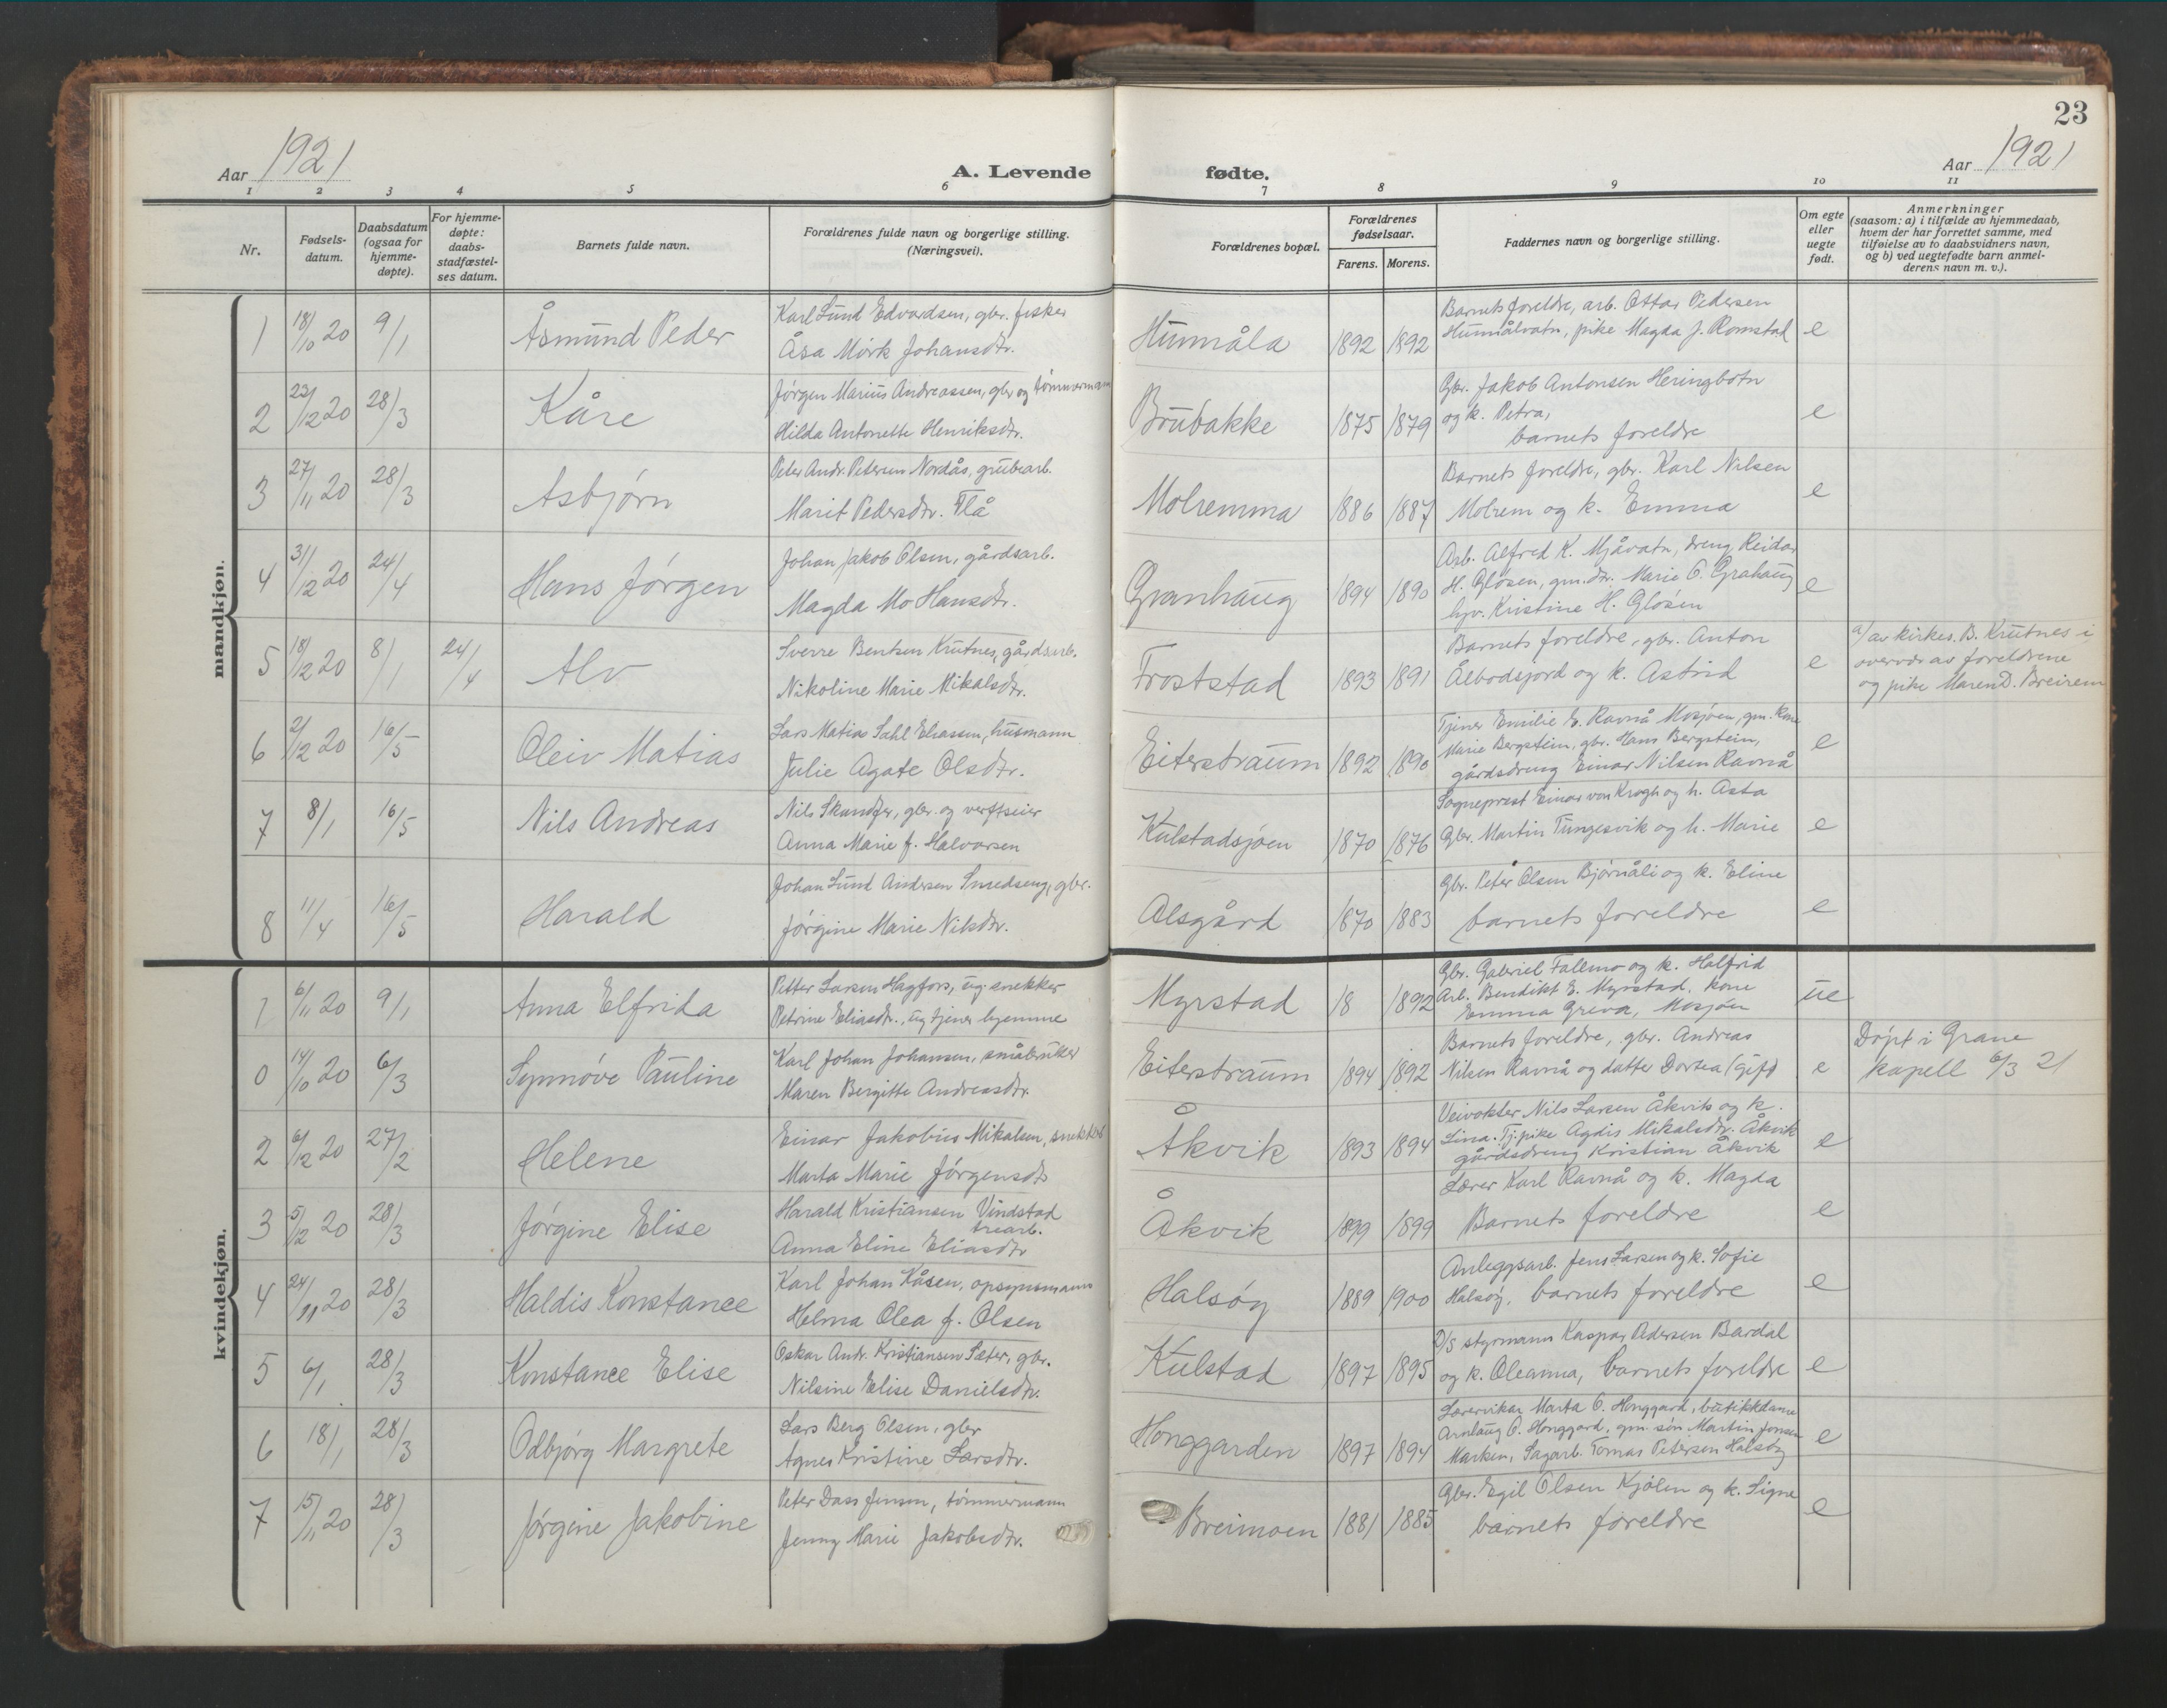 23
Aar 1921
A. Levende
fødte.
Aar 1921
1 2 3 4 5 6 7 8 9 10 11
Nr.
Fødsels-
datum.
Daabsdatum
(ogsaa for
hjemme-
døpte).
For hjemme-
døpte:
daabs-
stadfæstel-
ses datum.
Barnets fulde navn.
Forældrenes fulde navn og borgerlige stilling.
(Næringsvei).
Forældrenes bopæl.
Forældrenes
fødselsaar.
Farens. Morens.
Faddernes navn og borgerlige stilling.
Om egte
eller
uegte
født.
Anmerkninger
(saasom: a) i tilfælde av hjemmedaab,
hvem der har forrettet samme, med
tilføielse av to daabsvidners navn,
og b) ved uegtefødte barn anmel-
derens navn m. v.).
mandkjøn.
1 18/10 20 9/1 Åsmund Peder
Karl Lund Edvardsen, gbr. fisker
Åsa Mörk Johansdtr.
Hunmåla 1892 1892
Barnets foreldre, arb. Ottar Pedersen
Hunmålvatn, pike Magda J. Romstad e
2 22/12 20 28/3 Kåre
Jørgen Marius Andreassen, gbr og tömmermann
Hilda Antonette Henriksdtr.
Brubakke 1875 1879
Gbr. Jakob Antonsen Heringbotn
og k. Petra,
barnets foreldre e
3 27/11 20 28/3 Asbjørn
Peter Andr. Petersen Nordås, grubearb.
Marit Pedersdtr. Flå
Molremma 1886 1887
Barnets foreldre, gbr. Karl Nilsen
Molrem og k. Emma e
4 31/12 20 24/4 Hans Jørgen
Johan Jakob Olsen, gårdsarb.
Magda Mo Hansdtr.
Granhaug 1894 1890
Arb. Alfred K. Mjåvatn, dreng Reidar
H. Glosen, gm. dtr. Marie O. Grahaug
hpr. Kristine H. Glosen e
5 18/12 20 8/1 24/4 Alv
Sverre Bentsen Krutnes, gårdsarb.
Nikoline Marie Mikalsdtr.
Froststad 1893 1891
Barnets foreldre, gbr. Anton
Ålbodsjord og k. Astrid e
a) av kirkes. B. Krutnes i
overvær av foreldrene
og pike Maren D. Breirem
6 2/12 20 16/5 Oleiv Matias
Lars Matias Dahl Eliassen, husmann
Julie Agate Olsdtr.
Eiterstraum 1892 1890
Tjener Emilie E. Ravnå Mosjøen, gm. kone
Marie Bergstein, gbr. Hans Bergstein,
gårdsdreng Einar Nilsen Ravnå e
7 8/1 16/5 Nils Andreas
Nils Skandfer, gbr. og verftseier
Anna Marie f. Halvorsen
Kulstadsjøen 1870 1876
Sogneprest Einar von Krogh og h. Asta
Gbr. Martin Tungesvik og h. Marie e
8 11/4 16/5 Harald
Johan Lund Andersen Smedseng, gbr.
Jørgine Marie Nilsdtr.
Alsgård 1870 1883
Gbr. Peter Olsen Bjørnåli og k. Eline
barnets foreldre e
kvindekjøn.
1 6/11 20 9/1 Anna Elfrida
Petter Larsen Hagfors, ug. snekker
Petrine Eliasdtr., ug tjener hjemme
Myrstad 18 1892
Gbr. Gabriel Fallmo og k. Halfrid
Arb. Bendikt E. Myrstad, kone
Emma Greva, Mosjøen ue
0 14/10 20 6/3 Synnöve Pauline
Karl Johan Johansen, småbruker
Maren Bergitte Andreasdtr.
Eiterstraum 1894 1892
Barnets foreldre, gbr. Andreas
Nilsen Ravnå og datter Dortea (gift) e
Döpt i Grane
kapell 6/3 21
2 6/12 20 27/2 Helene
Einar Jakobus Mikalsen, snekker
Marta Marie Jörgensdtr
Åkvik 1893 1894
Veivokter Nils Larsen Åkvik og k.
Lina. Tj.pike Agdis Mikalsdtr. Åkvik
gårdsdreng Kristian Åkvik e
3 5/12 20 28/3 Jørgine Elise
Harald Kristiansen Vindstad
trearb.
Anna Eline Eliasdtr
Åkvik 1899 1899
Lærer Karl Ravnå og k. Magda
Barnets foreldre e
4 24/11 20 28/3 Haldis Konstance
Karl Johan Kåsen, opsynsmann
Helma Olea f. Olsen
Halsøy 1889 1900
Anleggsarb. Jens Larsen og k. Sofie
Halsøy, barnets foreldre e
5 6/1 28/3 Konstance Elise
Oskar Andr. Kristiansen Sæter, gbr.
Nilsine Elise Danielsdtr.
Kulstad 1897 1895
D/S styrmann Kaspar Pedersen Bardal
og k. Oleanna, barnets foreldre e
6 18/1 28/3 Odbjørg Margrete
Lars Berg Olsen, gbr
Agnes Kristine Larsdtr.
Honggarden 1897 1894
Lærervikar Marta O. Honggard, butikkdame
Arnlaug O. Honggard, gm. søn Martin Jonsen
Marken, Sagarb. Tomas Petersen Halsöy e
7 15/11 20 28/3 Jørgine Jakobine
Peter Dass Jensen, tömmermann
Jenny Marie Jakobsdtr.
Breimoen 1881 1885
Gbr. Egil Olsen Kjölen og k. Signe
barnets foreldre e